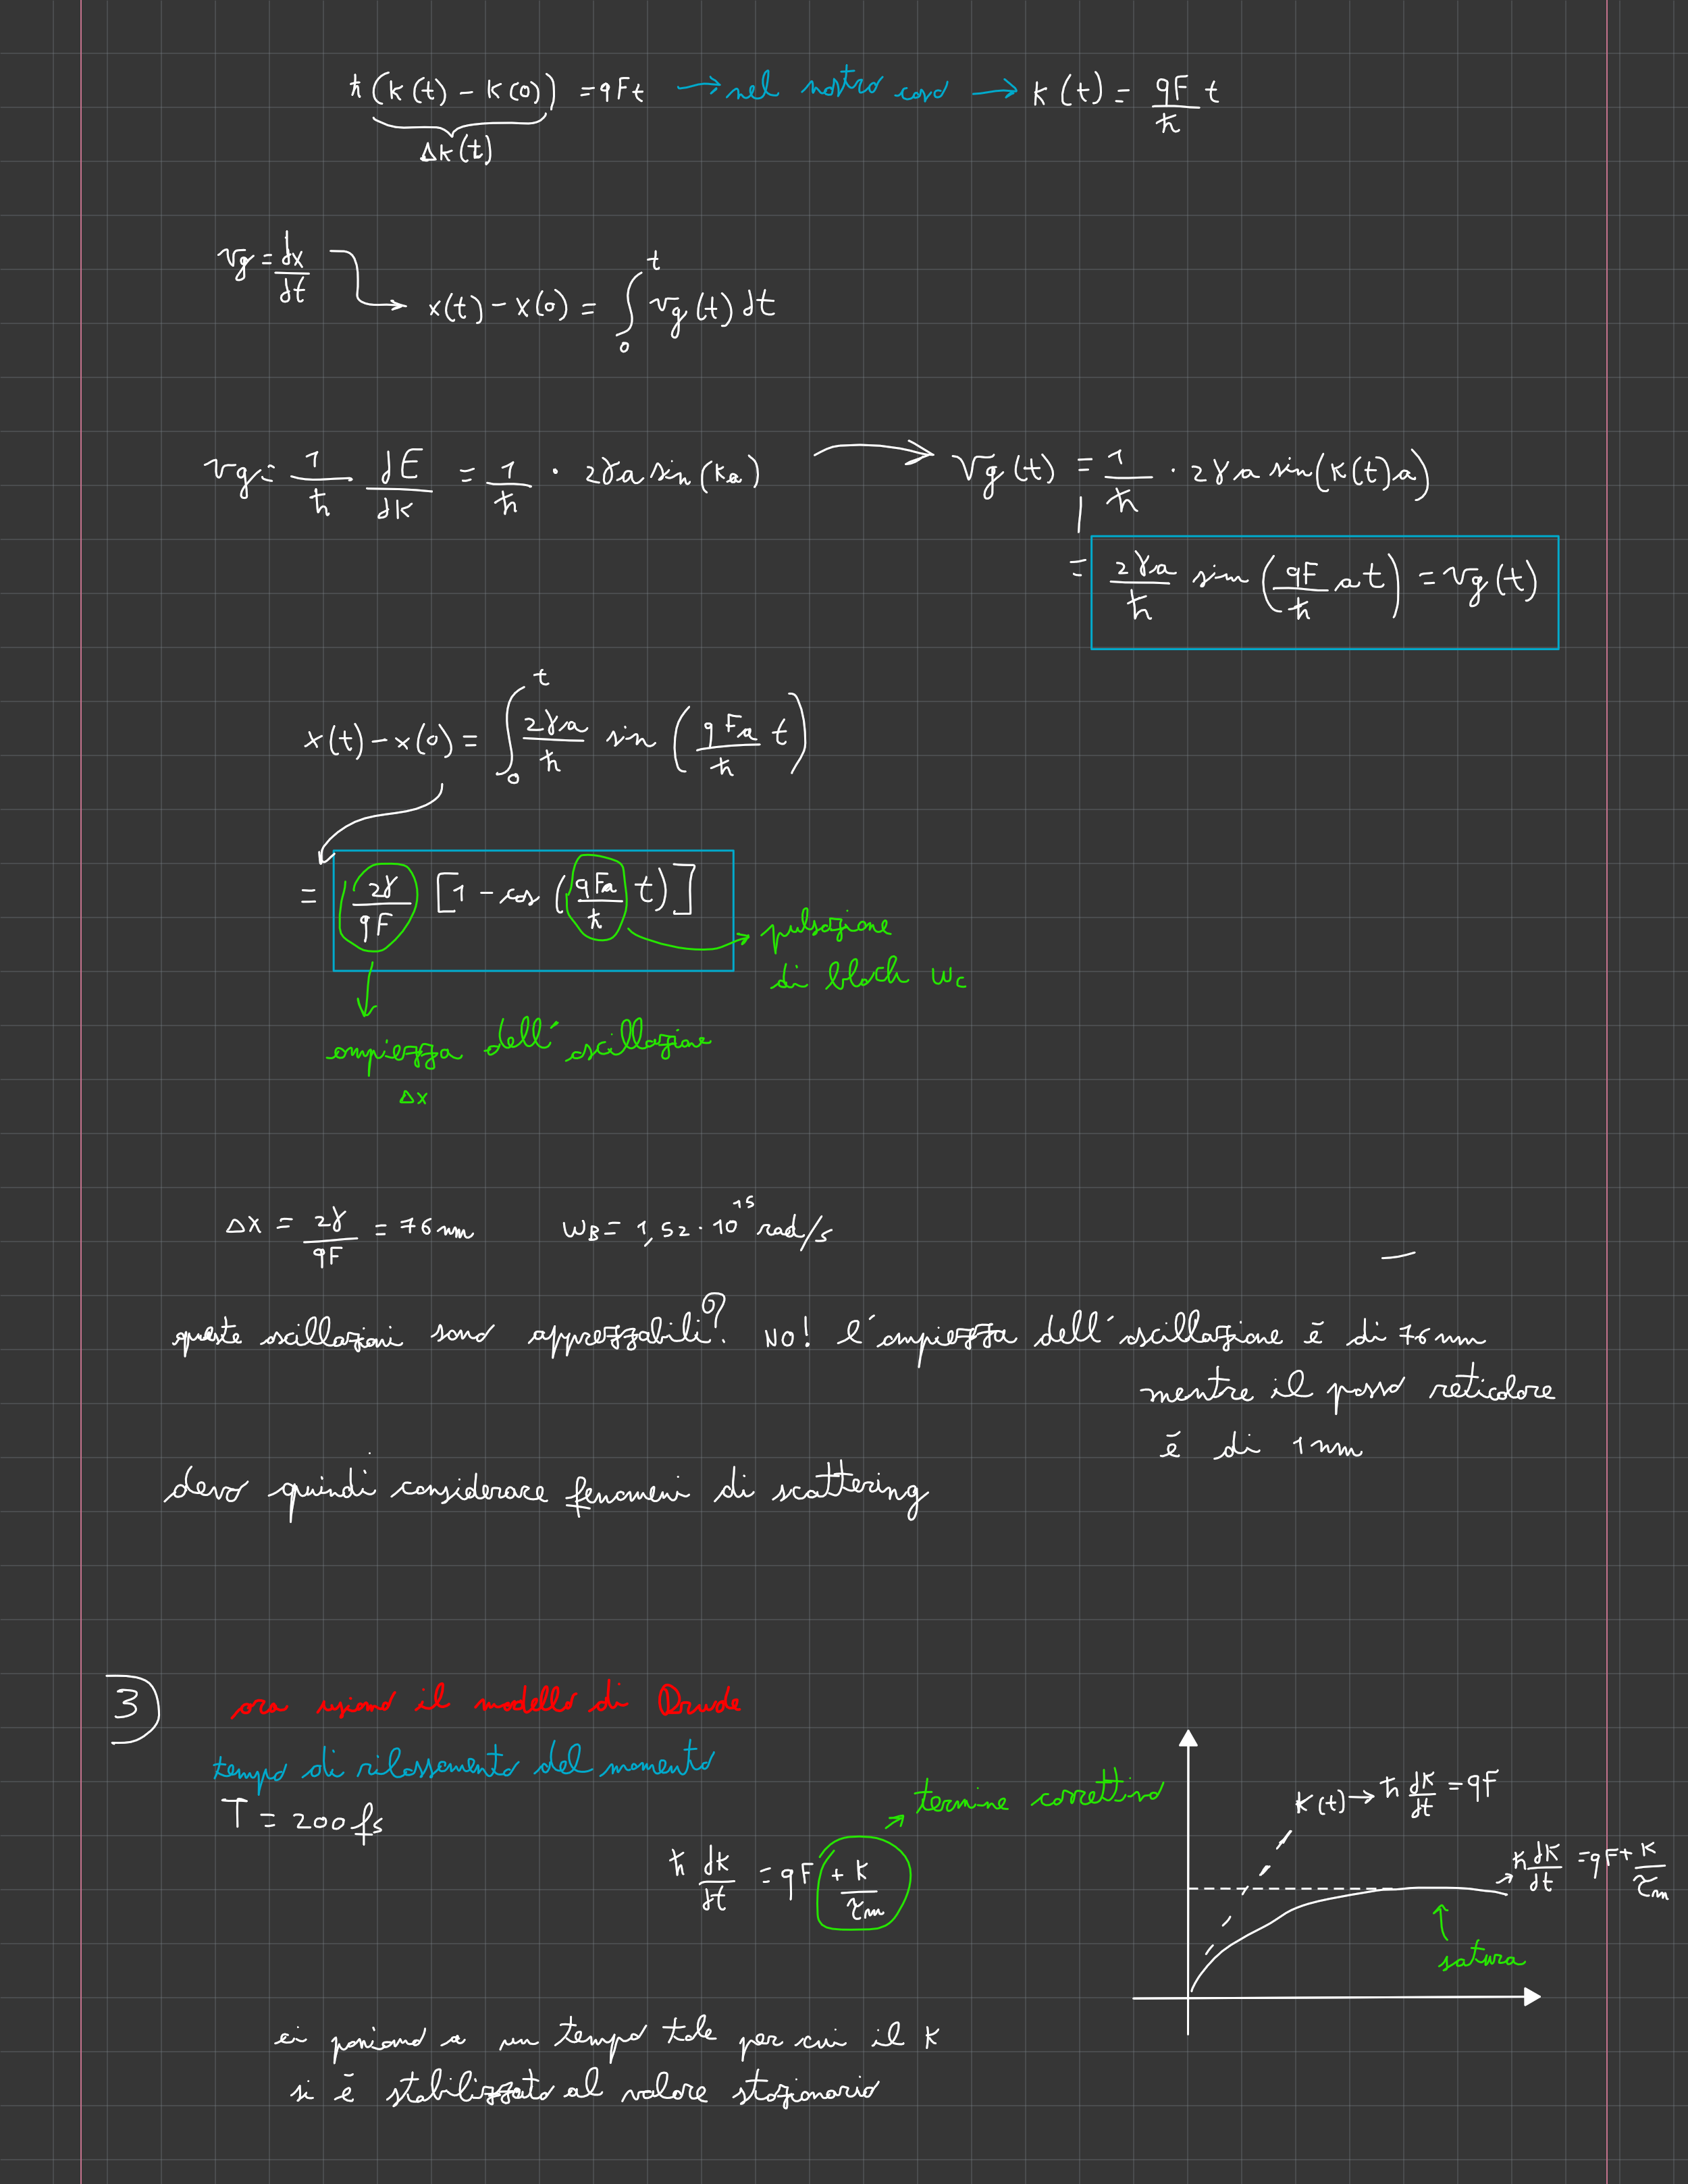 ħ (k(t) − k(0)) = qFt → nel nostro caso → k(t) = qF/ħ t
Δk(t)
vg = dx/dt
x(t) − x(0) = ∫₀ᵗ vg(t) dt
vg = 1/ħ dE/dk = 1/ħ · 2γa sin(ka) → vg(t) = 1/ħ · 2γa sin(k(t)a)
= 2γa/ħ sin(qF/ħ at) = vg(t)
x(t) − x(0) = ∫₀ᵗ 2γa/ħ sin(qFa/ħ t)
= 2γ/qF [1 − cos(qFa/ħ t)]
pulsazione
di bloch ωc
ampiezza dell'oscillazione
Δx
Δx = 2γ/qF = 76 nm ωB = 1,52·10¹⁵ rad/s
queste oscillazioni sono apprezzabili? NO! l'ampiezza dell'oscillazione è di 76 nm
mentre il passo reticolare
è di 1 nm
devo quindi considerare fenomeni di scattering
3) ora usiamo il modello di Drude
tempo di rilassamento del momento
T = 200 fs
termine correttivo
ħ dk/dt = qF + k/τm
k(t) → ħ dk/dt = qF
ħ dk/dt = qF + k/τm
satura
ci poniamo a un tempo tale per cui il k
si è stabilizzato al valore stazionario